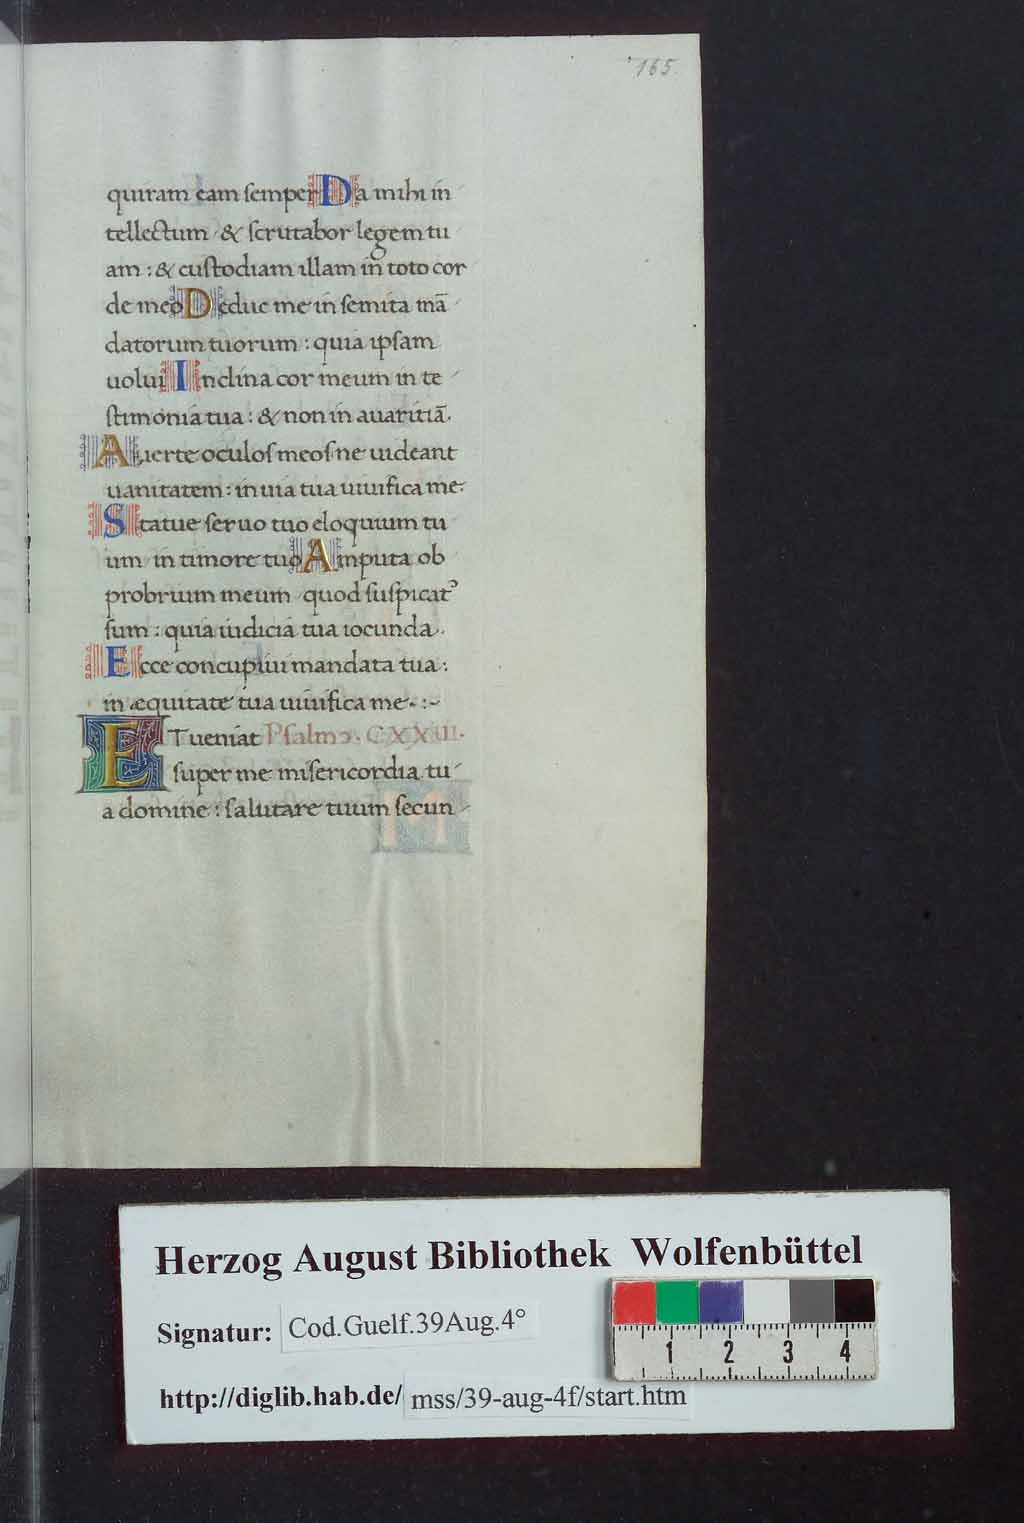 165.
quiram eam semper Da mihi in
tellectum & scrutabor legem tu
am : & custodiam illam in toto cor
de meo Deduc me in semita mā
datorum tuorum : quia ipsam
uolui Inclina cor meum in te
stimonia tua : & non in auaritiā.
Auerte oculos meos ne uideant
uanitatem : in uia tua uiuifica me.
Statue seruo tuo eloquium tu
um in timore tuo Amputa ob
probrium meum quod suspicatꝰ
sum : quia iudicia tua iocunda.
Ecce concupiui mandata tua :
in æquitate tua uiuifica me. :~
ET ueniat Psalmo. CXXIII.
super me misericordia tu
a domine : salutare tuum secun
Herzog August Bibliothek Wolfenbüttel
Signatur: Cod.Guelf.39Aug.4°
1 2 3 4
http://diglib.hab.de/ mss/39-aug-4f/start.htm